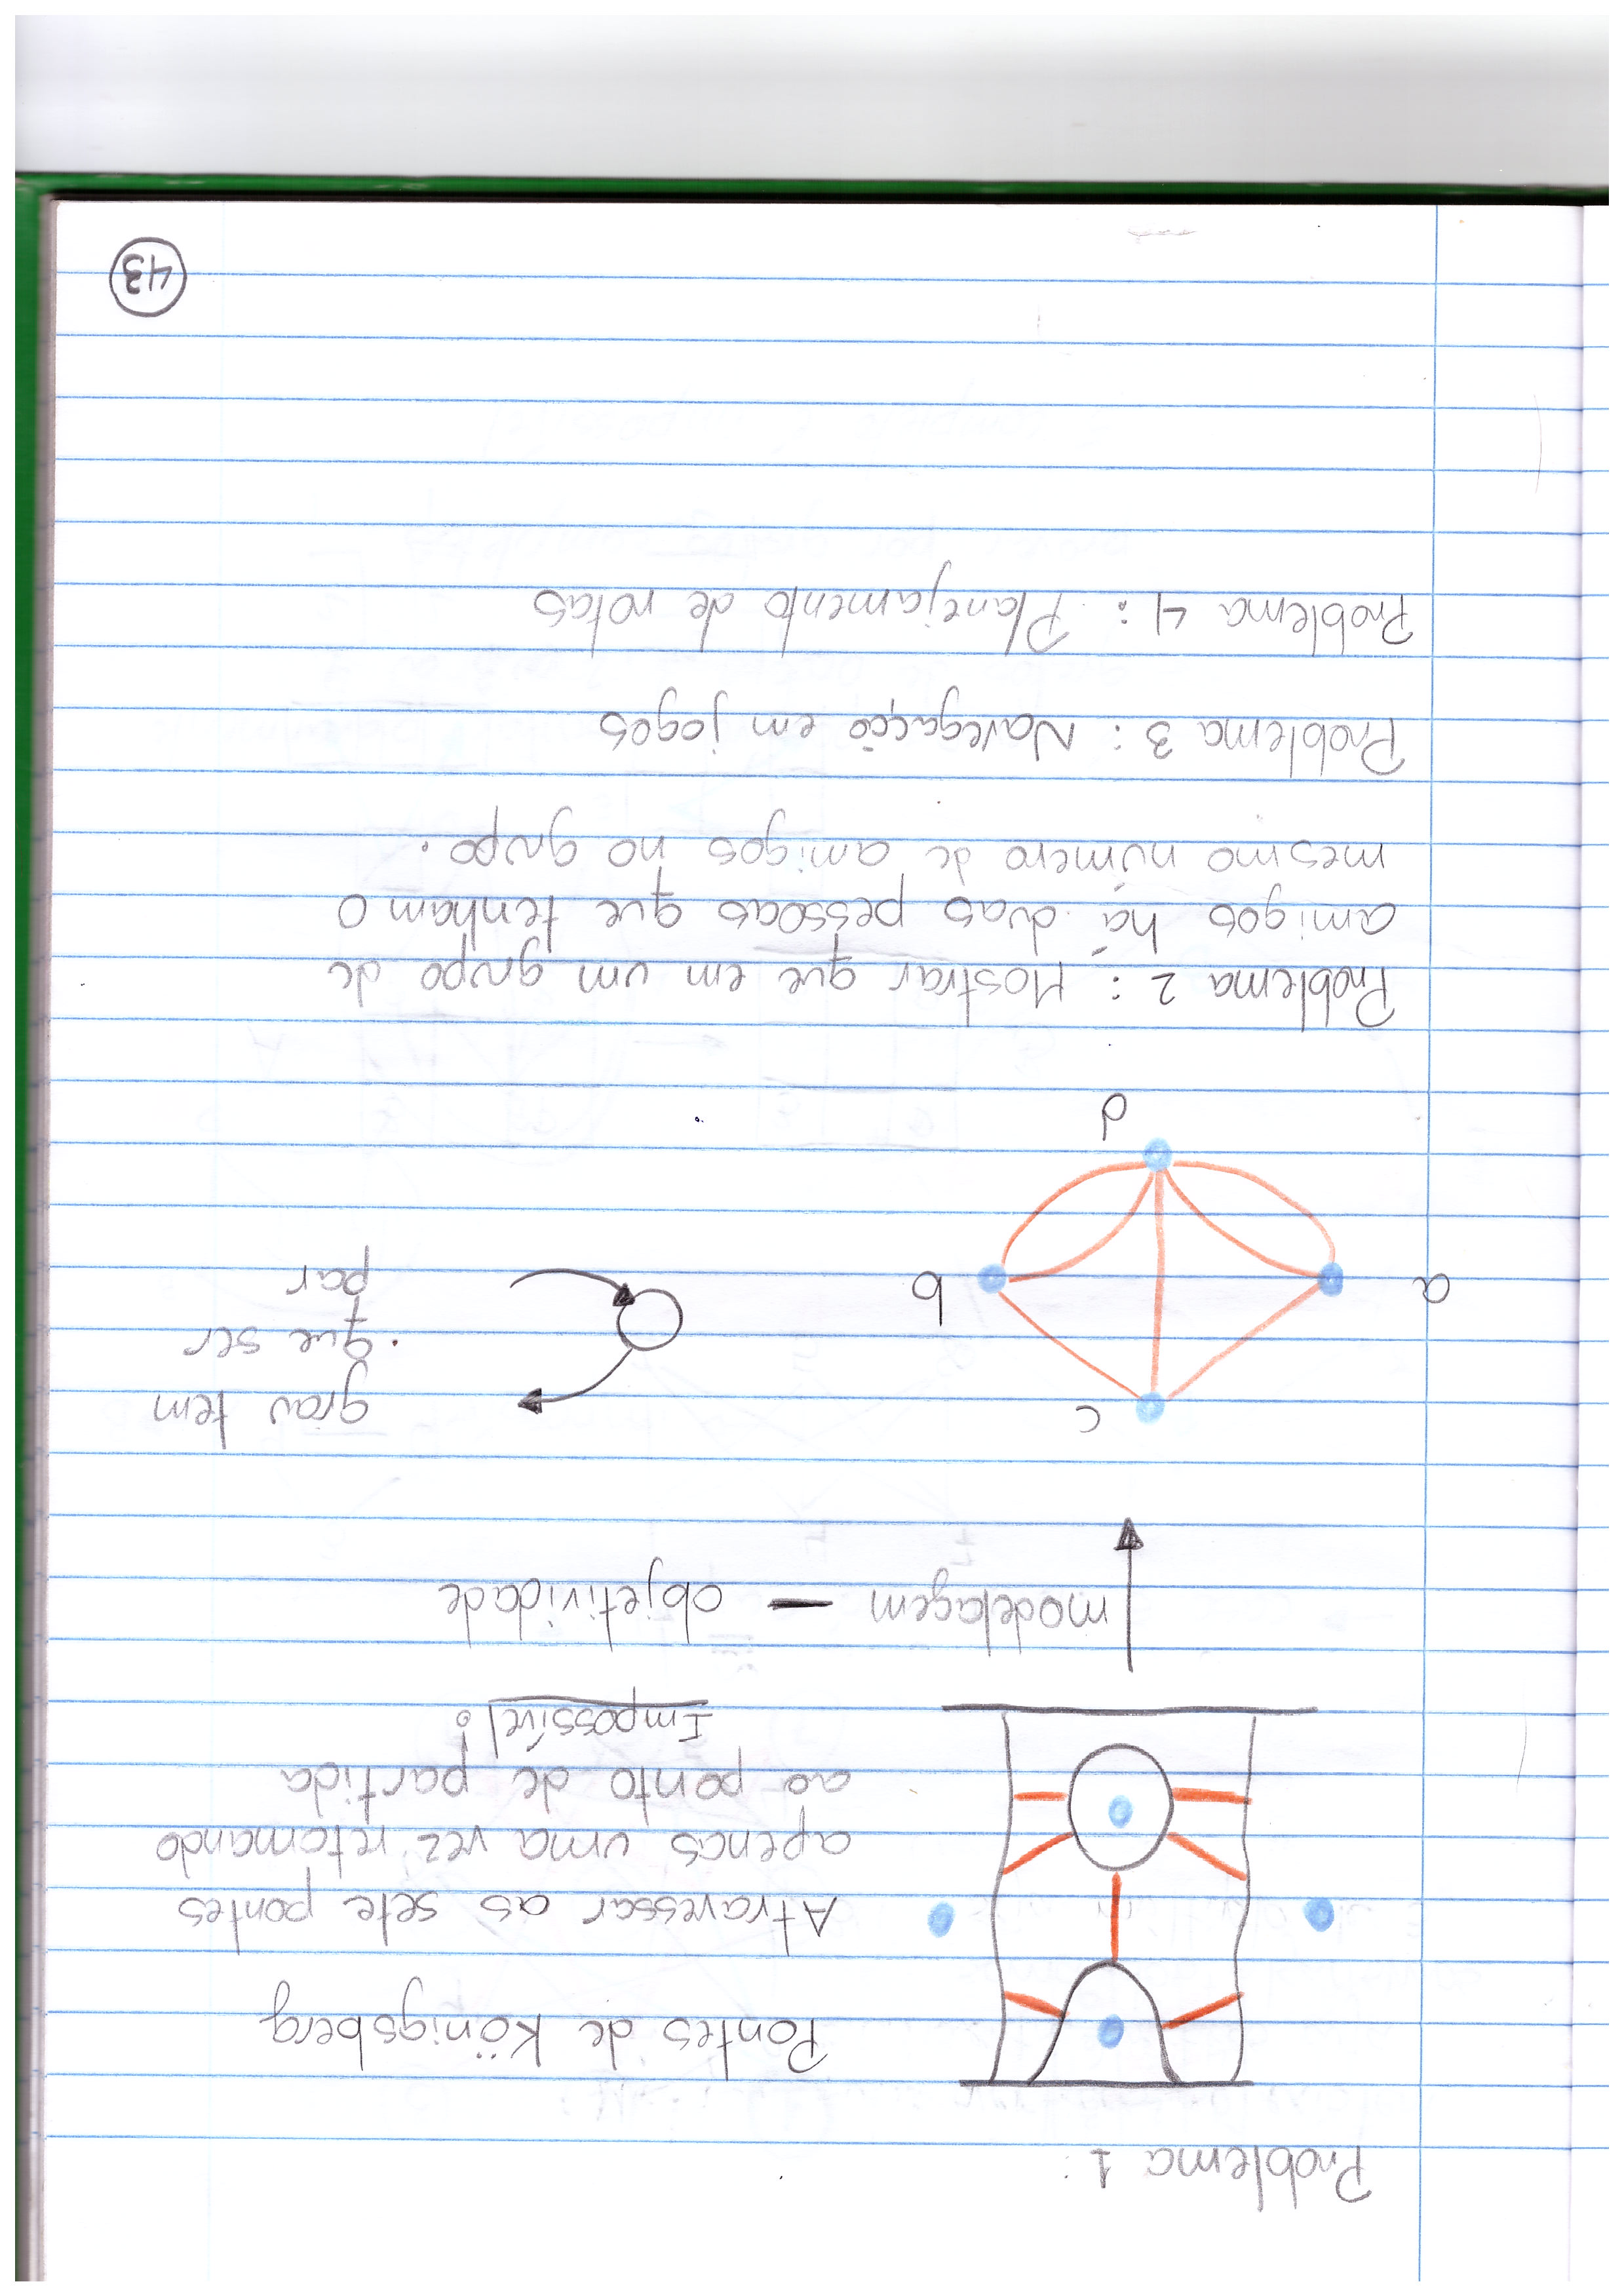 Problema 1:
Pontes de Königsberg
Atravessar as sete pontes
apenas uma vez retornando
ao ponto de partida
Impossível!
modelagem — objetividade
c
a
b
d
grau tem
que ser
par
Problema 2: Mostrar que em um grupo de
amigos há duas pessoas que tenham o
mesmo número de amigos no grupo.
Problema 3: Navegação em jogos
Problema 4: Planejamento de rotas
43